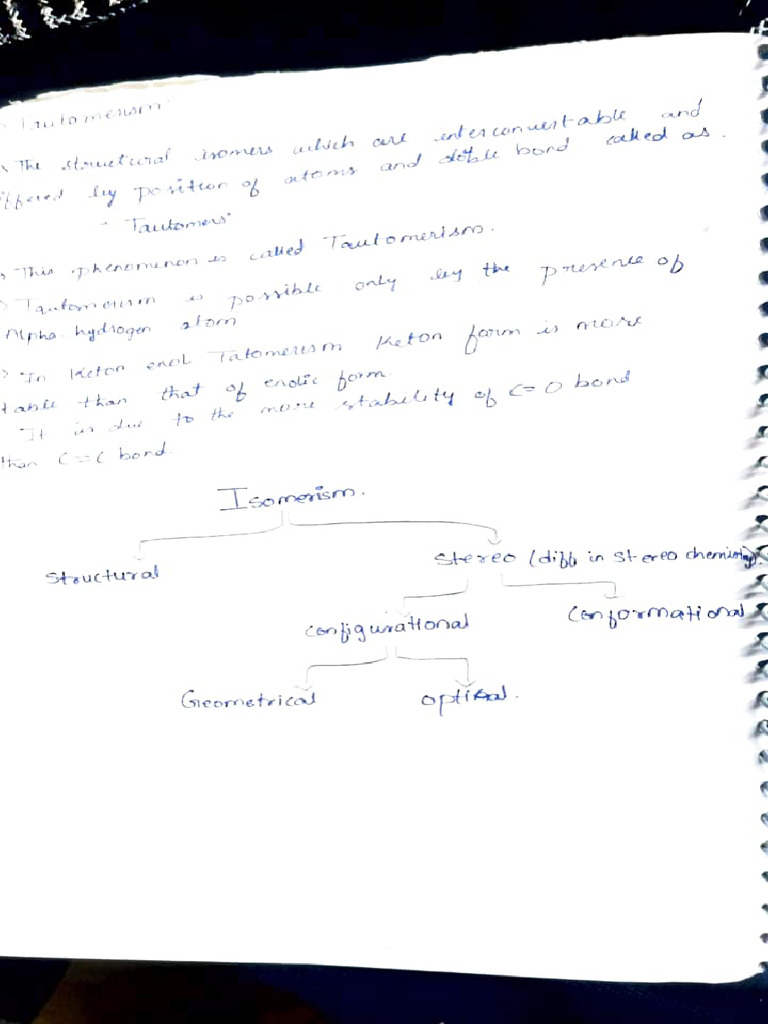 Tautomerism:
The structural isomers which are interconvertable and
iffered by position of atoms and doble bond called as.
"Tautomers"
This phenomenon is called Tautomerism.
Tautomerism is possible only by the presence of
Alpha hydrogen atom
In Keton enol Tatomerism Keton form is more
table than that of enolic form.
It is due to the more stability of C=O bond
than C=C bond.
Isomerism.
Structural
Stereo (diff in stereo chemistry).
Configurational
Conformational
Geometrical
optical.